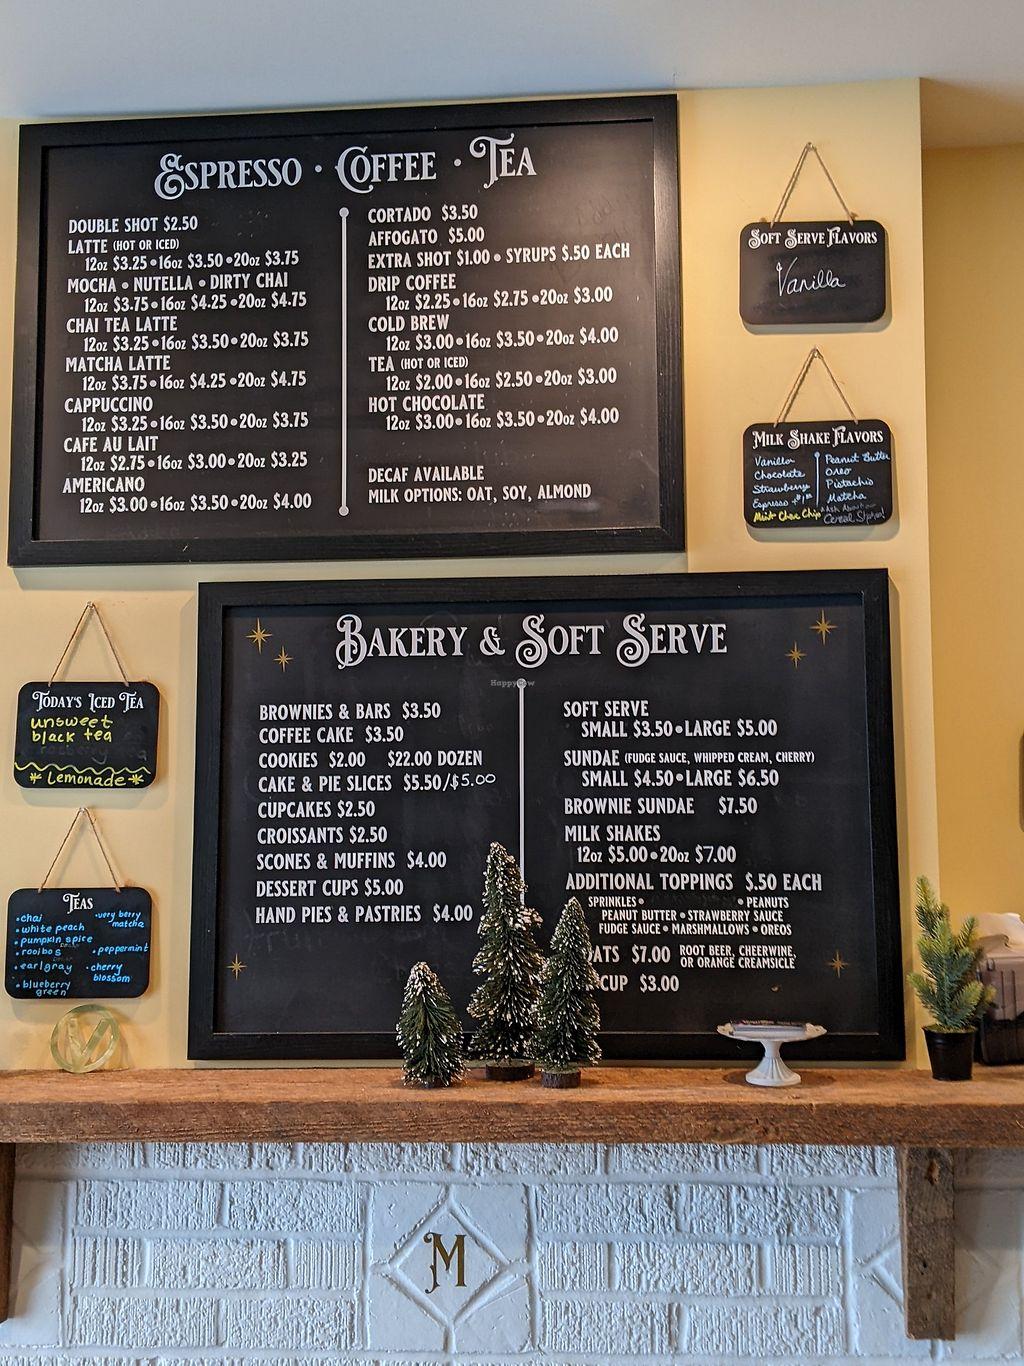 Espresso · Coffee · Tea
DOUBLE SHOT $2.50
LATTE (HOT OR ICED)
12oz $3.25•16oz $3.50•20oz $3.75
MOCHA • NUTELLA • DIRTY CHAI
12oz $3.75•16oz $4.25•20oz $4.75
CHAI TEA LATTE
12oz $3.25•16oz $3.50•20oz $3.75
MATCHA LATTE
12oz $3.75•16oz $4.25•20oz $4.75
CAPPUCCINO
12oz $3.25•16oz $3.50•20oz $3.75
CAFE AU LAIT
12oz $2.75•16oz $3.00•20oz $3.25
AMERICANO
12oz $3.00•16oz $3.50•20oz $4.00
CORTADO $3.50
AFFOGATO $5.00
EXTRA SHOT $1.00 • SYRUPS $.50 EACH
DRIP COFFEE
12oz $2.25•16oz $2.75•20oz $3.00
COLD BREW
12oz $3.00•16oz $3.50•20oz $4.00
TEA (HOT OR ICED)
12oz $2.00•16oz $2.50•20oz $3.00
HOT CHOCOLATE
12oz $3.00•16oz $3.50•20oz $4.00
DECAF AVAILABLE
MILK OPTIONS: OAT, SOY, ALMOND
Soft Serve Flavors
Vanilla
Milk Shake Flavors
Vanilla
Chocolate
Strawberry
Espresso
Mint Choc Chip
Peanut Butter
Oreo
Pistachio
Matcha
*Ask About our
Cereal Shakes!
Today's Iced Tea
unsweet
black tea
* Lemonade *
Teas
• chai
• white peach
• pumpkin spice
• rooibos
• earl gray
• blueberry
green
• very berry
matcha
• peppermint
• cherry
blossom
Bakery & Soft Serve
HappyCow
BROWNIES & BARS $3.50
COFFEE CAKE $3.50
COOKIES $2.00 $22.00 DOZEN
CAKE & PIE SLICES $5.50/$5.00
CUPCAKES $2.50
CROISSANTS $2.50
SCONES & MUFFINS $4.00
DESSERT CUPS $5.00
HAND PIES & PASTRIES $4.00
SOFT SERVE
SMALL $3.50•LARGE $5.00
SUNDAE (FUDGE SAUCE, WHIPPED CREAM, CHERRY)
SMALL $4.50•LARGE $6.50
BROWNIE SUNDAE $7.50
MILK SHAKES
12oz $5.00•20oz $7.00
ADDITIONAL TOPPINGS $.50 EACH
SPRINKLES • • PEANUTS
PEANUT BUTTER • STRAWBERRY SAUCE
FUDGE SAUCE • MARSHMALLOWS • OREOS
OATS $7.00 ROOT BEER, CHEERWINE,
OR ORANGE CREAMSICLE
CUP $3.00
M